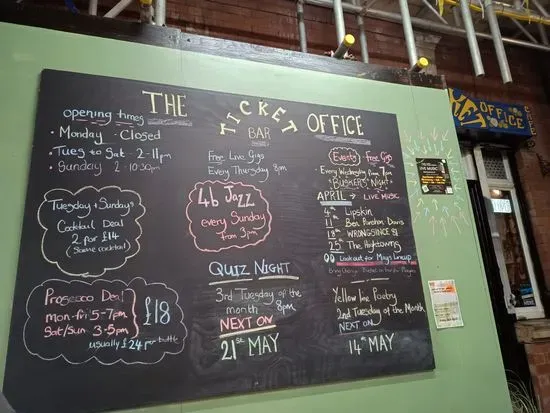 THE TICKET OFFICE
BAR
opening times
• Monday - Closed
• Tues to Sat - 2-11pm
• Sunday 2-10.30pm
Tuesday + Sundays
Cocktail Deal
2 for £14
(Same cocktail)
Prosecco Deal
mon-fri 5-7pm
Sat/Sun 3-5pm
£18
usually £24 per bottle
Free Live Gigs
Every Thursday 8pm
4b Jazz
every Sunday
from 3pm
QUIZ NIGHT
3rd Tuesday of the
month 8pm
NEXT ON
21st MAY
Events - free Gigs
Every Wednesday from 7pm
"BUSKERS" Night
APRIL → LIVE MUSIC
4th Lipskin
11th Ben Parchan Davis
18th WRONGSINCE 81
25th The Hightowns
Look out for May's Lineup
Yellow Ime Poetry
2nd Tuesday of the Month
NEXT ON
14th MAY
OFFICE
LIVE MUSIC